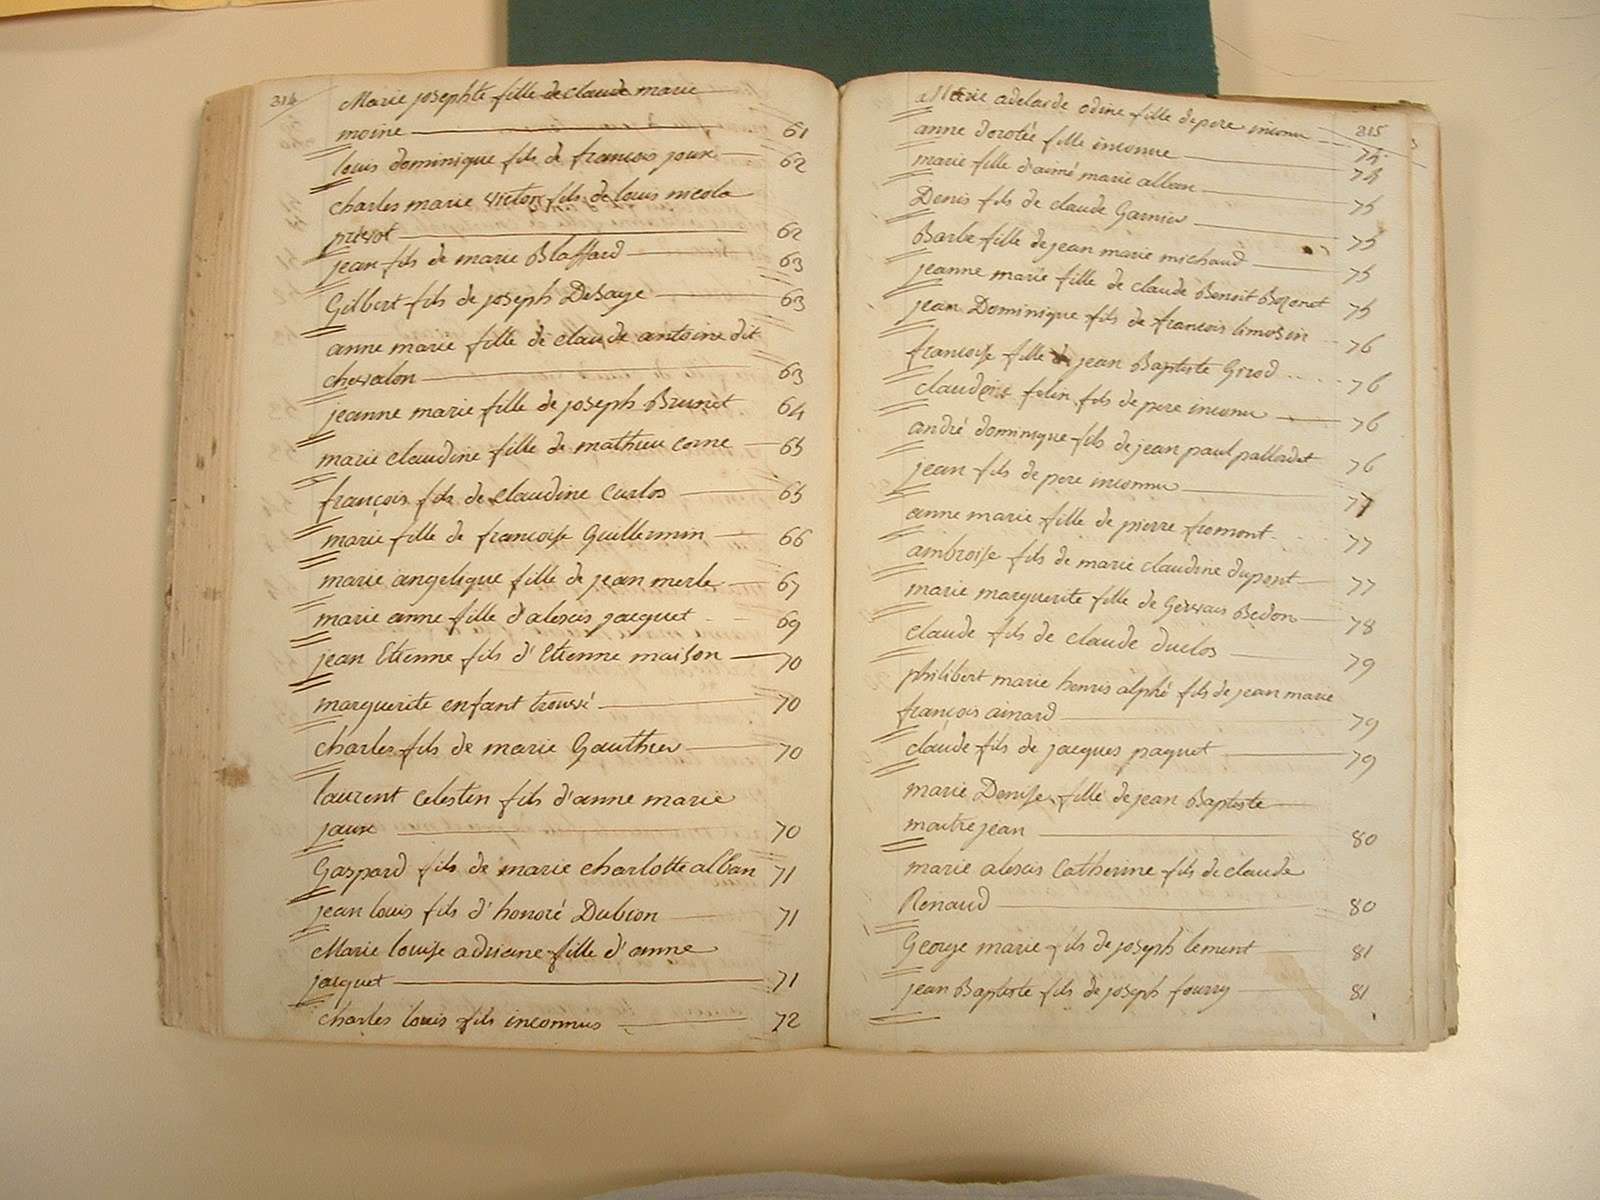 314
Marie josephte fille de claude marie
moine 61
louis dominique fils de françois joux 62
charles marie victor fils de louis nicola
prevot 62
jean fils de marie Blaffard 63
Gilbert fils de joseph Desaye 63
anne marie fille de claude antoine dit
chevalon 63
jeanne marie fille de joseph Brunet 64
marie claudine fille de mathieu corne 65
françois fils de claudine Carlos 65
marie fille de françoise Guillermin 66
marie angelique fille de jean merle 67
marie anne fille d'alexis jacquet 69
jean Etienne fils d'Etienne maison 70
marguerite enfant trouvé 70
charles fils de marie Gauthier 70
laurent celestin fils d'anne marie
jaux 70
Gaspard fils de marie charlotte alban 71
jean louis fils d'honoré Dubion 71
Marie louise adriene fille d'anne
jacquet 71
charles louis fils inconnus 72
315
Marie adelaide odine fille de pere inconu 74
anne dorotée fille inconnue 74
marie fille d'aimé marie alban 75
Denis fils de claude Garnier 75
Barbe fille de jean marie michaud 75
jeanne marie fille de claude Benoit Bozonet 75
jean Dominique fils de françois limosin 76
françoise fille de jean Baptiste Girod 76
fils de pere inconu 76
andré dominique fils de jean paul pallordet 76
jean fils de pere inconnu 77
anne marie fille de pierre fromont 77
ambroise fils de marie claudine dupont 77
marie marguerite fille de Gervais Bedon 78
claude fils de claude duclos 79
philibert marie henris alphé fils de jean marie
françois ainard 79
claude fils de jacques paquet 79
marie Denise fille de jean Baptiste
maitrejean 80
marie alexis Catherine fils de claude
Renaud 80
George marie fils de joseph lement 81
jean Baptiste fils de joseph fourry 81